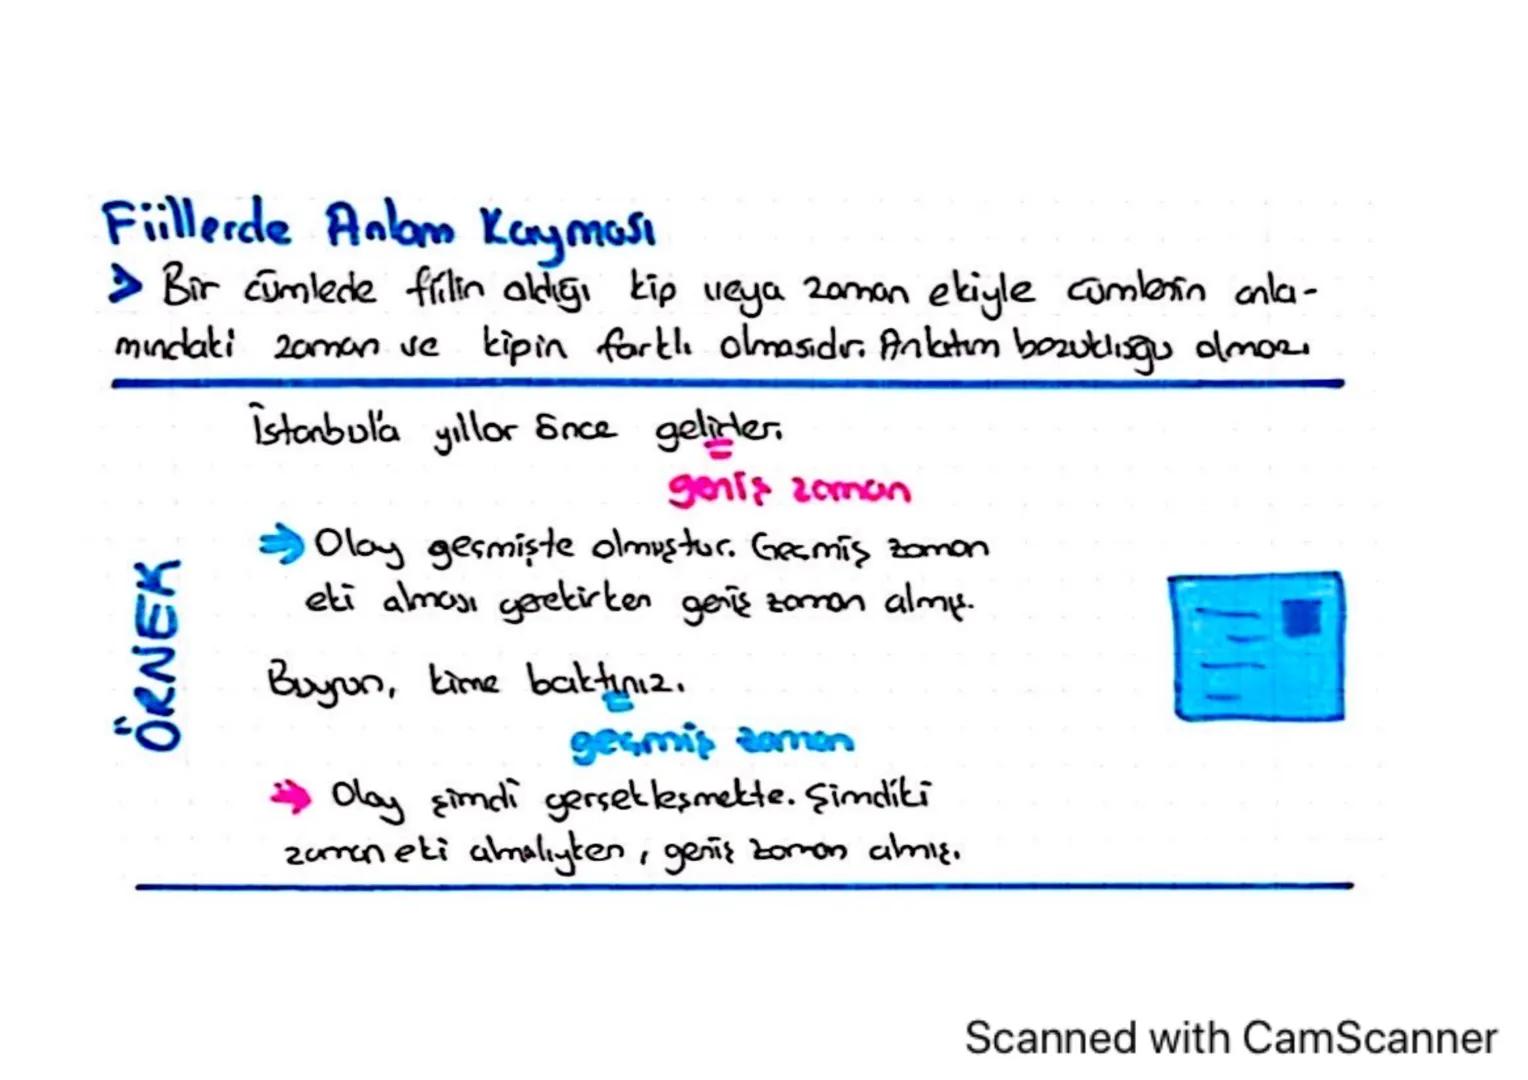 Fiillerde Anlam Kayması
> Bir cümlede fiilin aldığı kip veya zaman ekiyle cümlenin anla-
mındaki zaman ve kipin farklı olmasıdır. Anlatım bozukluğu olmaz.
İstanbul'a yıllar önce gelirler.
geniş zaman
⇒ Olay geçmişte olmuştur. Geçmiş zaman
eki alması gerekirken geniş zaman almış.
ÖRNEK
Buyrun, kime baktınız.
geçmiş zaman
⇒ Olay şimdi gerçekleşmekte. Şimdiki
zaman eki almalıyken, geniş zaman almış.
Scanned with CamScanner